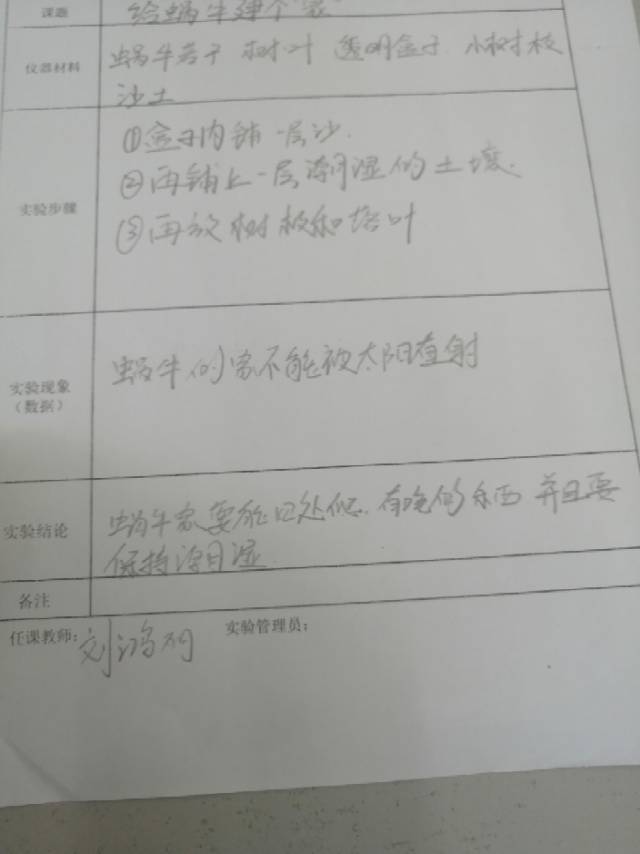 课题 给蜗牛建个“家”
仪器材料 蜗牛若干 树叶 透明盒子 小树枝
沙土
实验步骤
①盒子内铺一层沙.
②再铺上一层潮湿的土壤.
③再放树枝和落叶
实验现象
（数据）
蜗牛的家不能被太阳直射
实验结论
蜗牛家要能 有吃的东西 并且要
保持潮湿
备注
任课教师: 刘鸿 实验管理员: